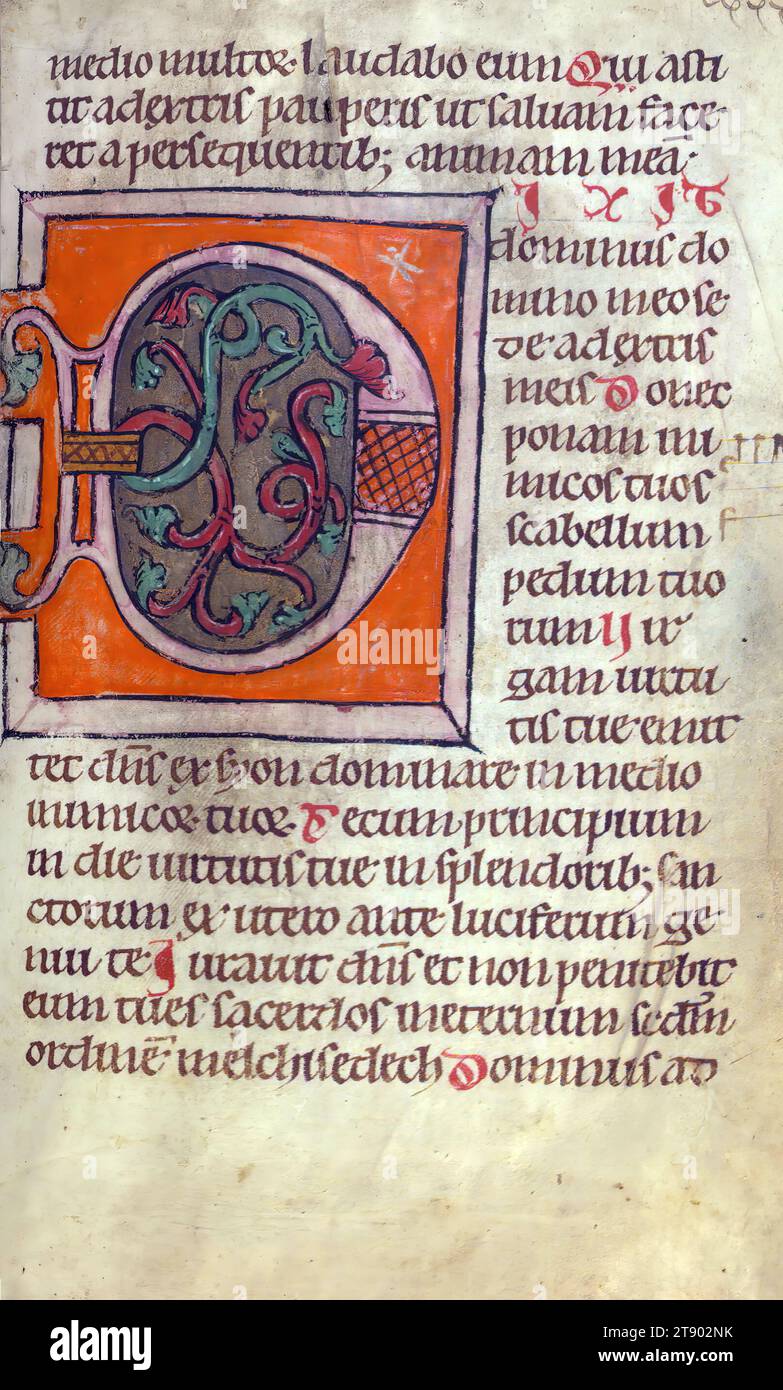 medio multoꝝ· laudabo eum Qui asti
tit adextris pauperis ut saluam face
ret apersequentib; animam meā·
D IXIT
dominus do
mino meo se
de adextris
meis Donec
ponam ini
micos tuos
scabellum
pedum tuo
rum Uir
gam uirtu
tis tue emit
tet dn̄s ex syon dominare in medio
inimicoꝝ tuoꝝ· Tecum principium
in die uirtutis tue in splendorib; san
ctorum ex utero ante luciferum ge
nui te Iurauit dn̄s et non penitebit
eum tu es sacerdos ineternum scdm̄
ordinē melchisedech Dominus ad
alamy
Image ID: 2T902NK
www.alamy.com